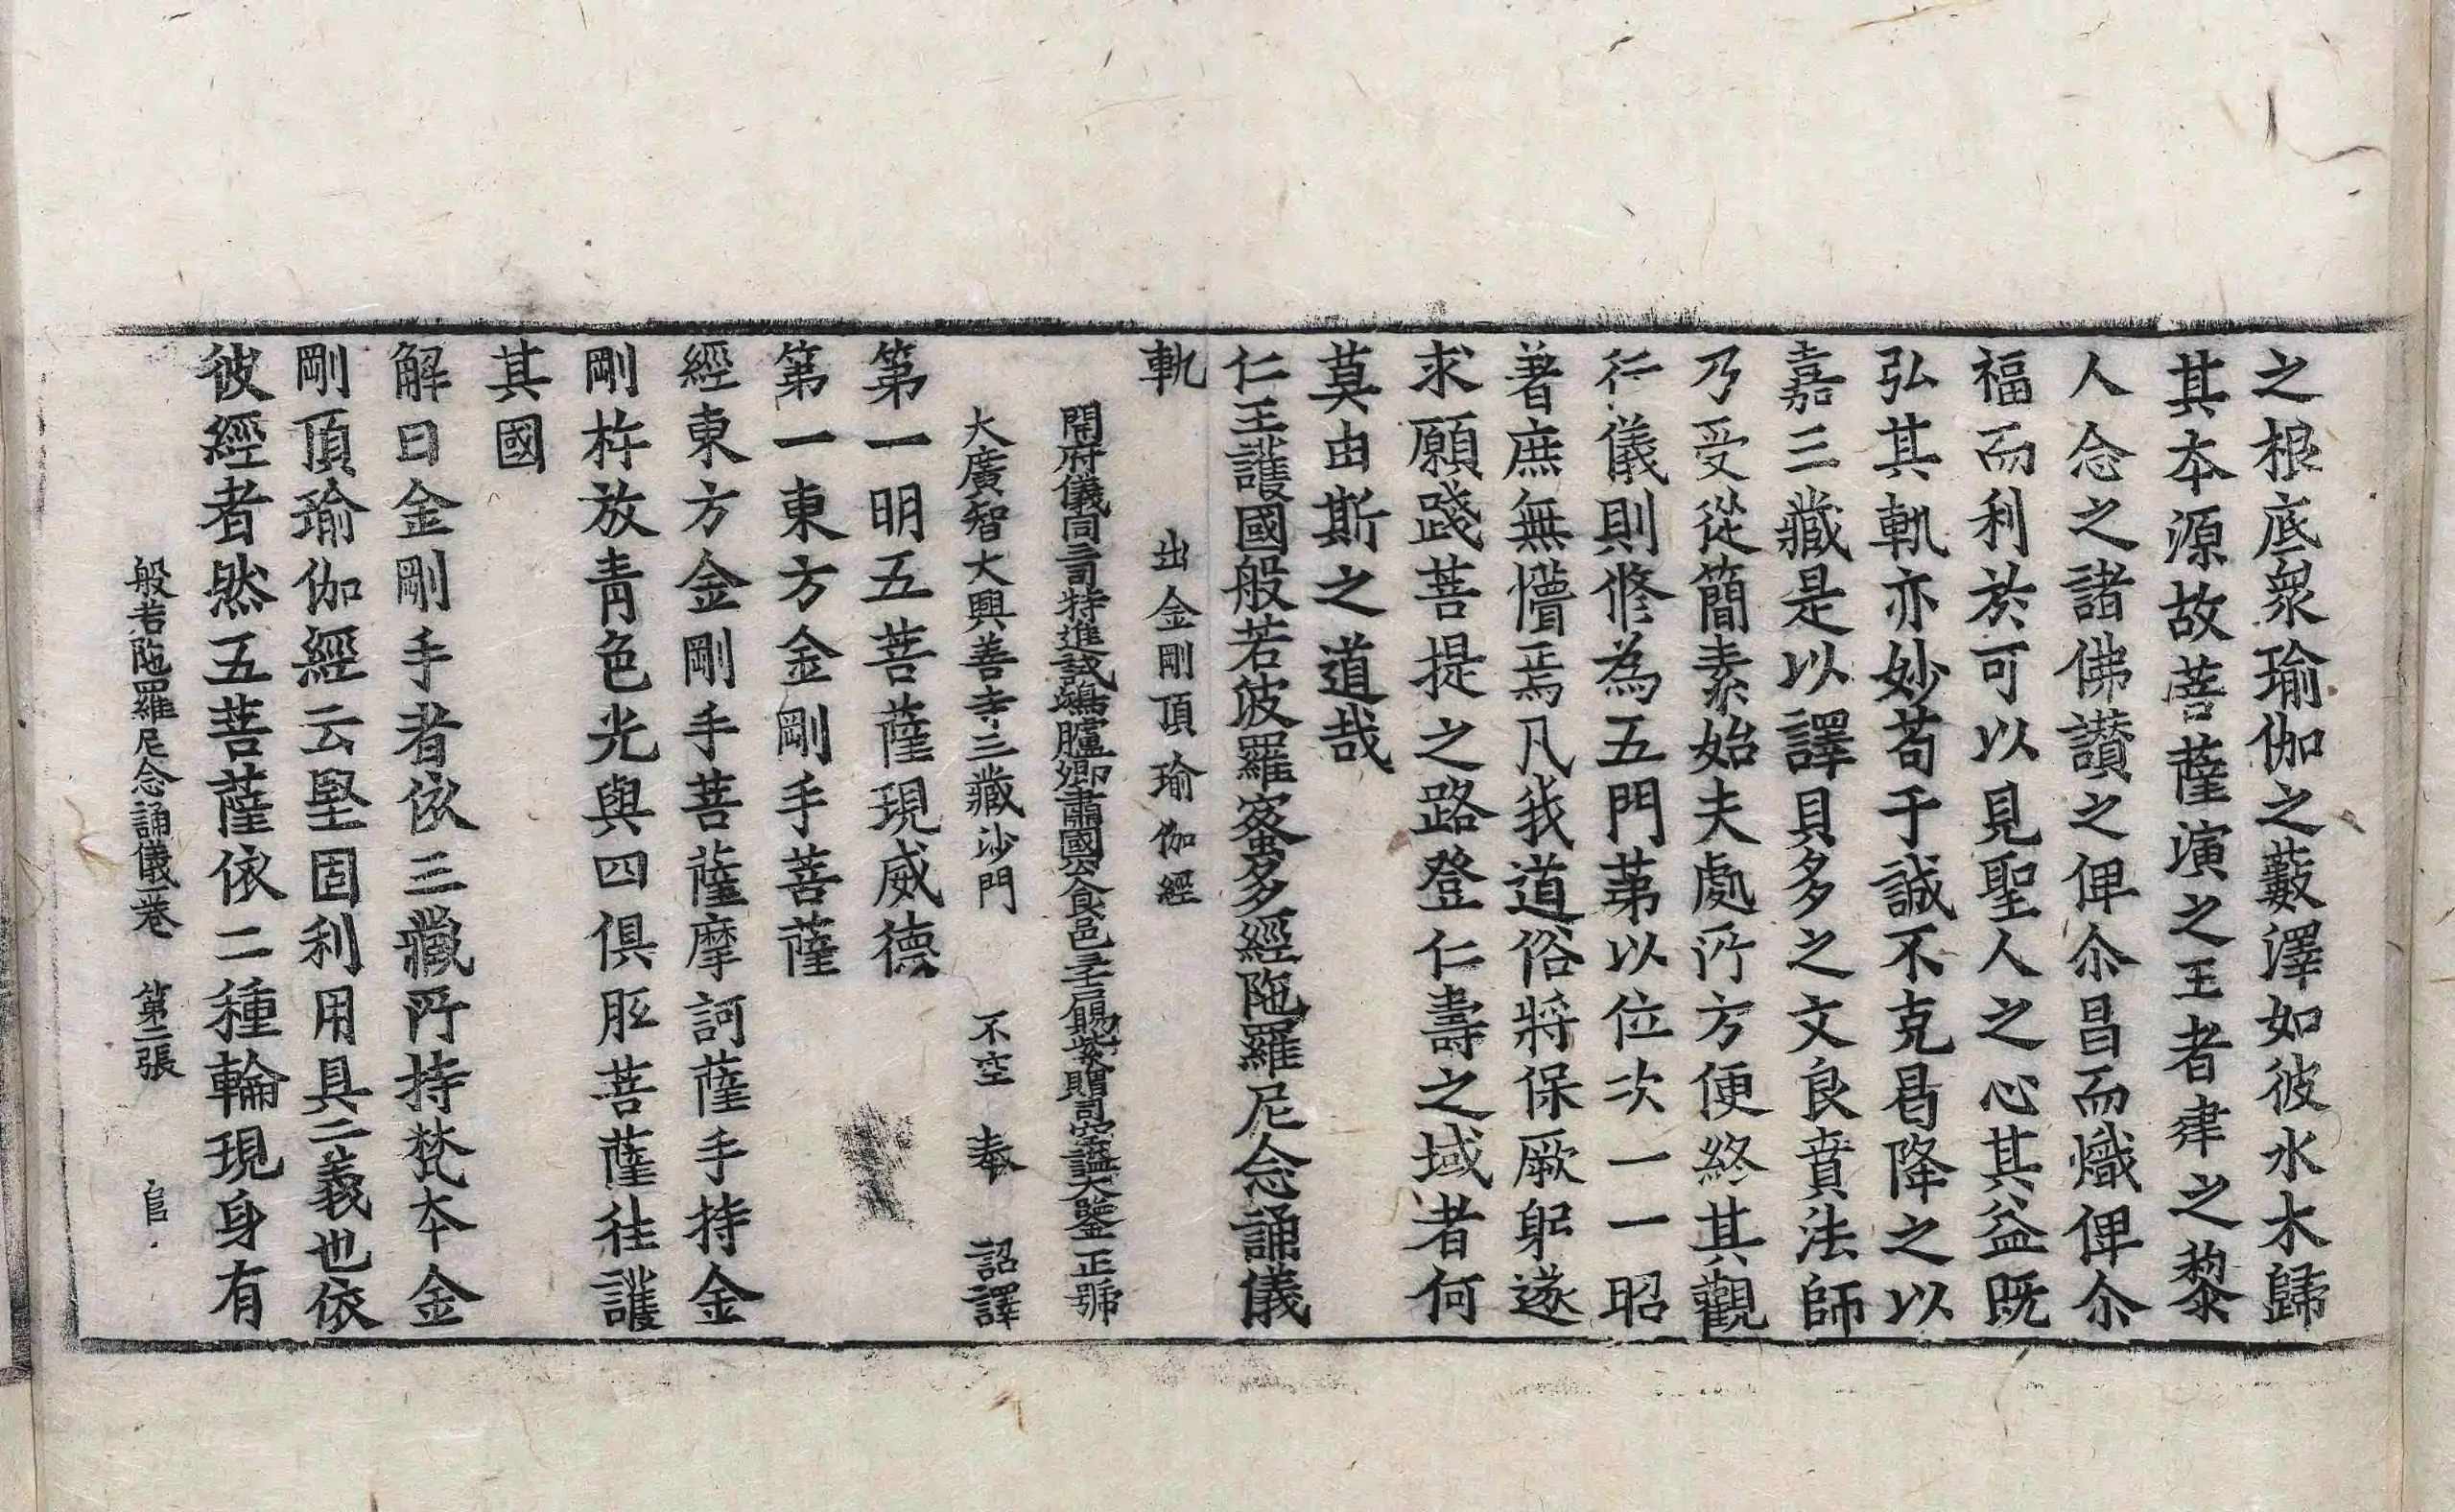 之根底衆瑜伽之藪澤如彼水木歸
其夲源故菩薩演之王者建之黎
人念之諸佛讃之俾尒昌而熾俾尒
福而利於可以見聖人之心其益既
弘其軌亦妙苟于誠不克曷降之以
嘉三藏是以譯貝多之文良賁法師
乃受從簡素始夫處所方便終其觀
行儀則修為五門苐以位次一一昭
著庶無懵焉凡我道俗將保厥躬遂
求願踐菩提之路登仁壽之域者何
莫由斯之道哉
仁王護國般若波羅蜜多經陁羅尼念誦儀
軌　出金剛頂瑜伽經
開府儀同三司特進試鴻臚卿肅國公食邑三千戶賜紫贈司空謚大鑒正號
大廣智大興善寺三藏沙門　不空　奉　詔譯
第一明五菩薩現威德
第一東方金剛手菩薩
經東方金剛手菩薩摩訶薩手持金
剛杵放青色光與四俱胝菩薩徃護
其國
解曰金剛手者依三藏所持梵夲金
剛頂瑜伽經云堅固利用具二義也依
彼經者然五菩薩依二種輪現身有
般若陁羅尼念誦儀一卷　第二張